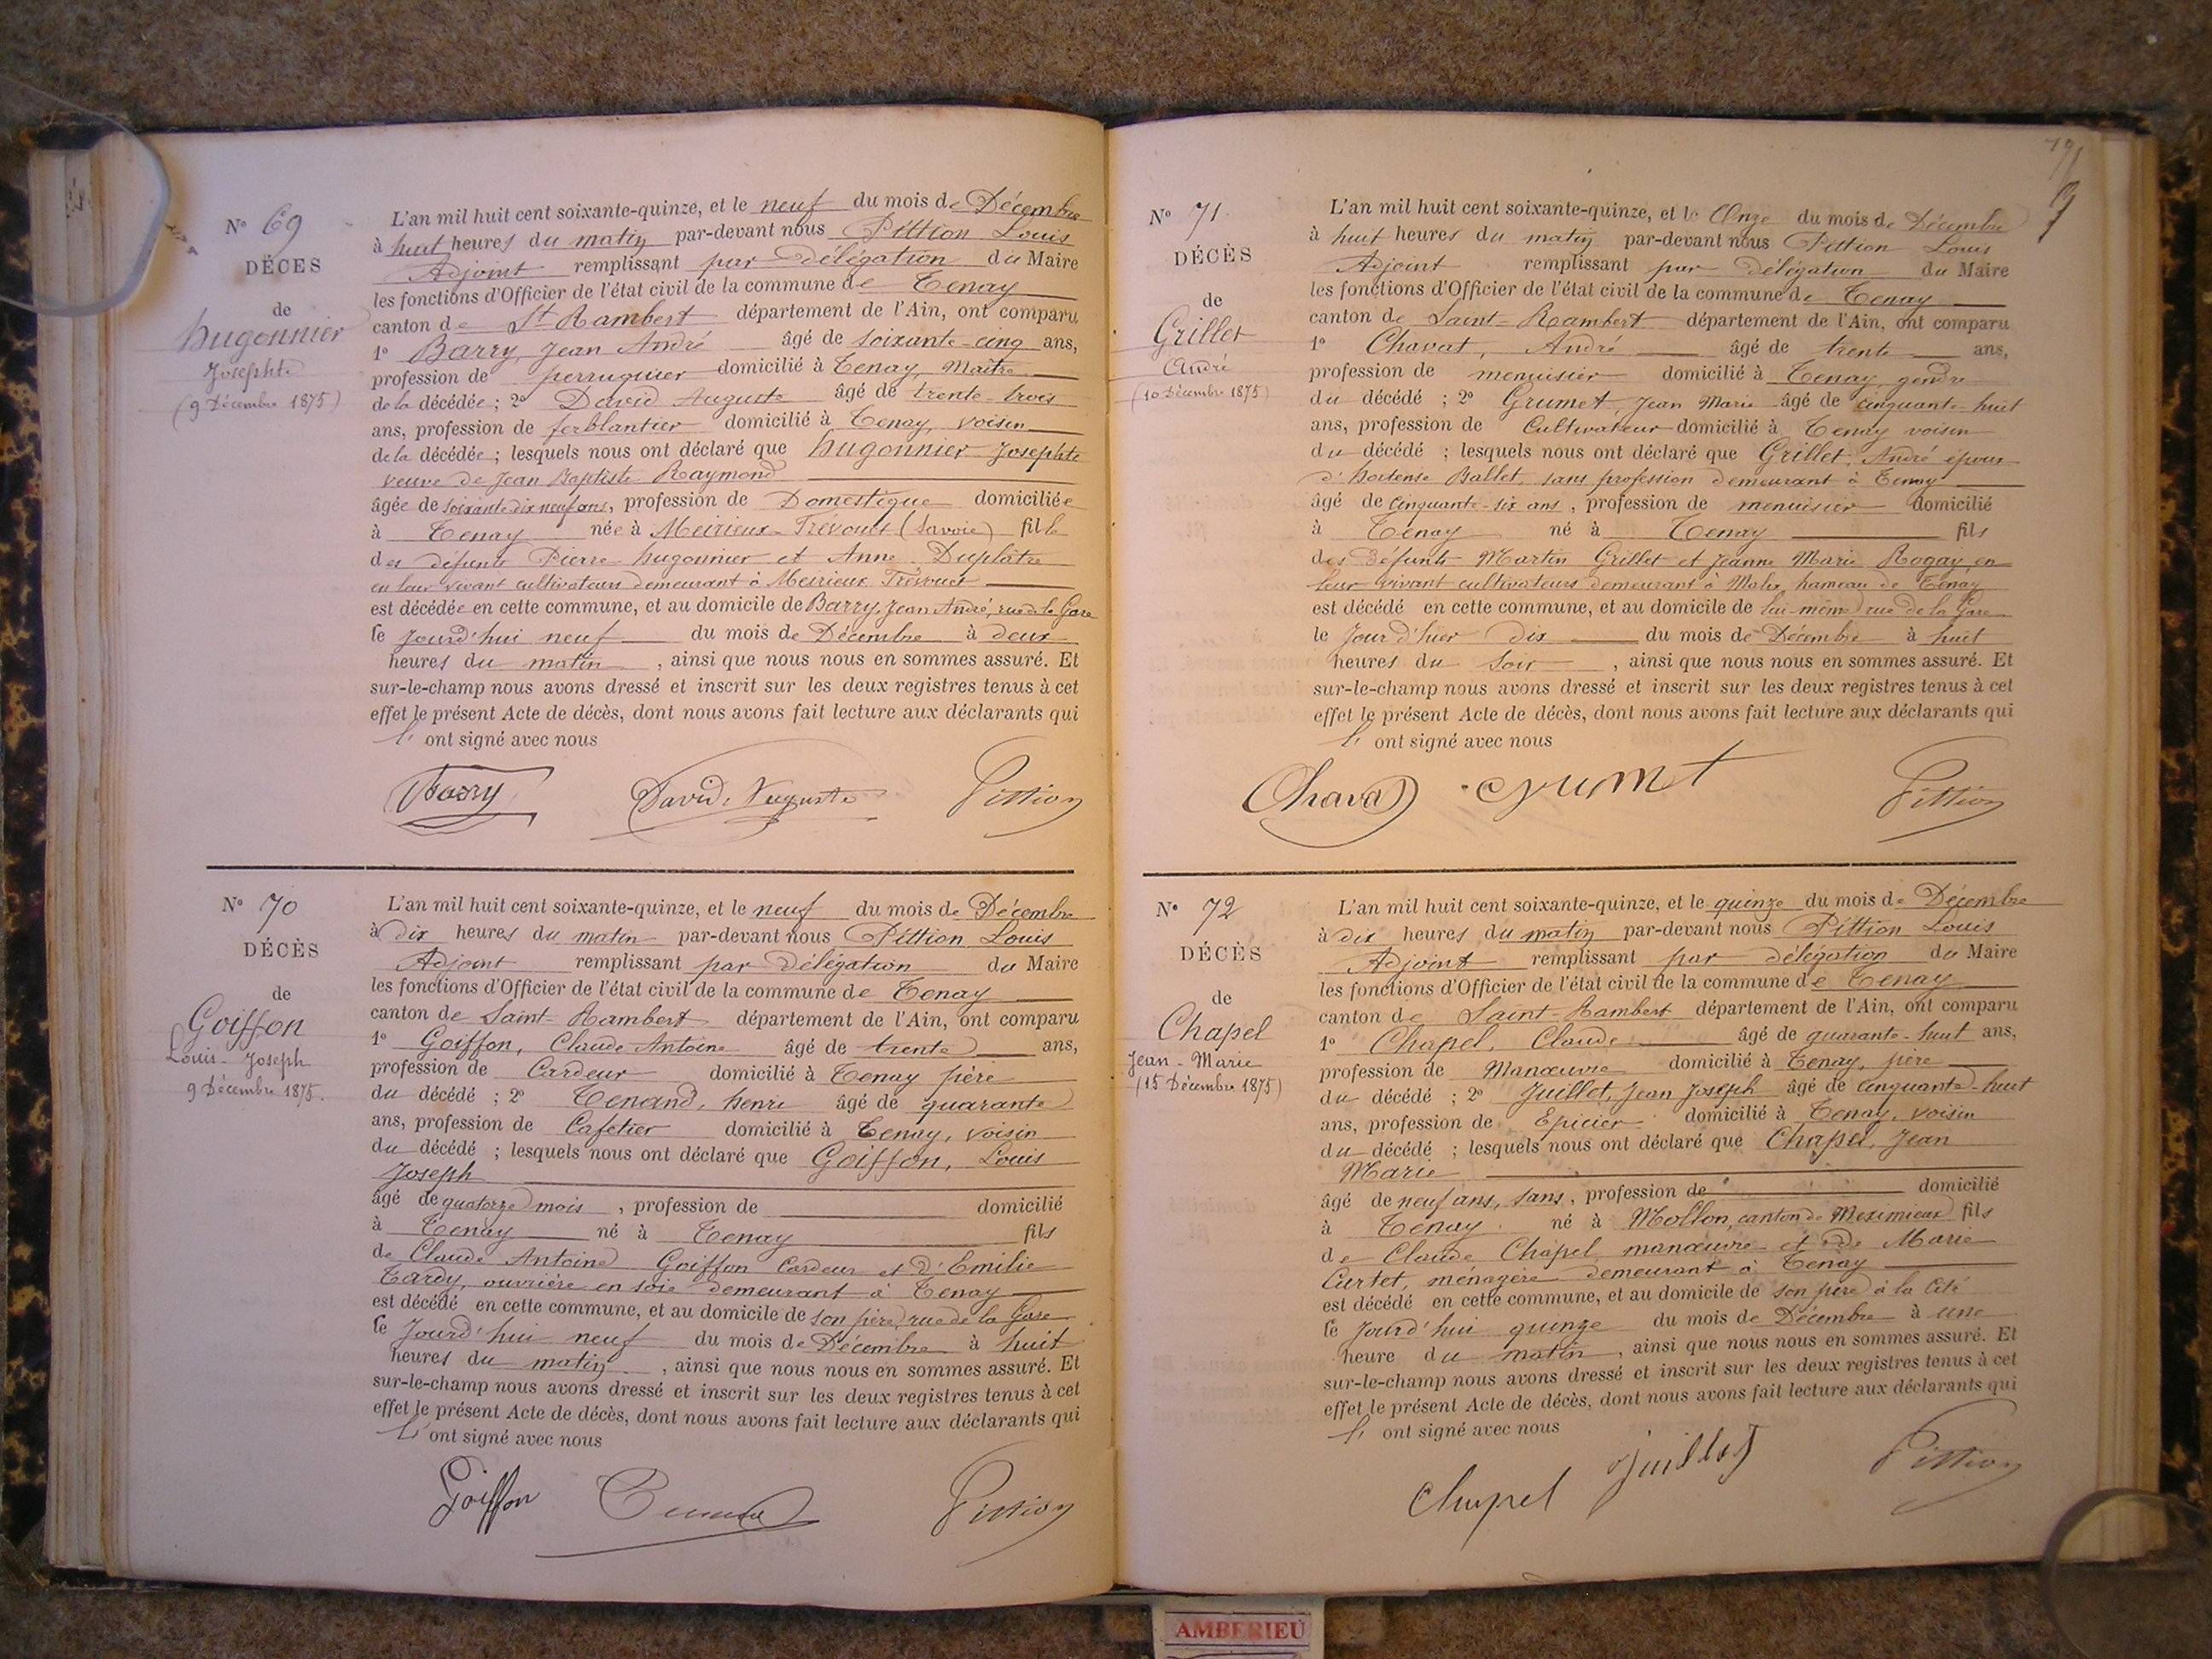 N° 69
DÉCES
de
Hugonnier
Josephte
(9 Décembre 1875)
L'an mil huit cent soixante-quinze, et le neuf du mois de Décembre
à huit heures du matin par-devant nous Pittion Louis
Adjoint remplissant par délégation du Maire
les fonctions d'Officier de l'état civil de la commune de Tenay
canton de St Rambert département de l'Ain, ont comparu
1° Barry, Jean André âgé de soixante-cinq ans,
profession de perruquier domicilié à Tenay, Maître
de la décédée ; 2° David Auguste âgé de trente-trois
ans, profession de ferblantier domicilié à Tenay, voisin
de la décédée ; lesquels nous ont déclaré que Hugonnier Josephte
veuve de Jean Baptiste Raymond
âgée de soixante dix neuf ans, profession de Domestique domiciliée
à Tenay née à Meirieux-Trévouet (Savoie) fille
des défunts Pierre Hugonnier et Anne Duplâtre
en leur vivant cultivateurs demeurant à Meirieux Trévouet
est décédée en cette commune, et au domicile de Barry, Jean André, rue de la Gare
le jourd'hui neuf du mois de Décembre à deux
heures du matin , ainsi que nous nous en sommes assuré. Et
sur-le-champ nous avons dressé et inscrit sur les deux registres tenus à cet
effet le présent Acte de décès, dont nous avons fait lecture aux déclarants qui
l' ont signé avec nous
Barry David Auguste Pittion
N° 70
DÉCÈS
de
Goiffon
Louis-Joseph
9 Décembre 1875.
L'an mil huit cent soixante-quinze, et le neuf du mois de Décembre
à dix heures du matin par-devant nous Pittion Louis
Adjoint remplissant par délégation du Maire
les fonctions d'Officier de l'état civil de la commune de Tenay
canton de Saint-Rambert département de l'Ain, ont comparu
1° Goiffon, Claude Antoine âgé de trente ans,
profession de Cardeur domicilié à Tenay père
du décédé ; 2° Tenand, henri âgé de quarante
ans, profession de Cafetier domicilié à Tenay, voisin
du décédé ; lesquels nous ont déclaré que Goiffon, Louis
Joseph
âgé de quatorze mois , profession de domicilié
à Tenay né à Tenay fils
de Claude Antoine Goiffon Cardeur et d'Emilie
Tardy, ouvrière en soie demeurant à Tenay
est décédé en cette commune, et au domicile de son père, rue de la Gare
le jourd'hui neuf du mois de Décembre à huit
heures du matin , ainsi que nous nous en sommes assuré. Et
sur-le-champ nous avons dressé et inscrit sur les deux registres tenus à cet
effet le présent Acte de décès, dont nous avons fait lecture aux déclarants qui
l' ont signé avec nous
Goiffon Pittion
N° 71
DÉCÈS
de
Grillet
André
(10 Décembre 1875)
L'an mil huit cent soixante-quinze, et le Onze du mois de Décembre
à huit heures du matin par-devant nous Pittion Louis
Adjoint remplissant par délégation du Maire
les fonctions d'Officier de l'état civil de la commune de Tenay
canton de Saint-Rambert département de l'Ain, ont comparu
1° Chavat, André âgé de trente ans,
profession de menuisier domicilié à Tenay, gendre
du décédé ; 2° Grumet, Jean Marie âgé de cinquante-huit
ans, profession de Cultivateur domicilié à Tenay voisin
du décédé ; lesquels nous ont déclaré que Grillet, André époux
d'hortense Ballet, sans profession demeurant à Tenay
âgé de Cinquante-six ans , profession de menuisier domicilié
à Tenay né à Tenay fils
des défunts Martin Grillet et Jeanne Marie Rogay, en
leur vivant cultivateurs demeurant à Malix hameau de Tenay
est décédé en cette commune, et au domicile de lui-même rue de la Gare
le jour d'hier dix du mois de Décembre à huit
heures du soir , ainsi que nous nous en sommes assuré. Et
sur-le-champ nous avons dressé et inscrit sur les deux registres tenus à cet
effet le présent Acte de décès, dont nous avons fait lecture aux déclarants qui
l' ont signé avec nous
Chavat Grumet Pittion
N° 72
DÉCÈS
de
Chapel
Jean-Marie
(15 Décembre 1875)
L'an mil huit cent soixante-quinze, et le quinze du mois de Décembre
à dix heures du matin par-devant nous Pittion Louis
Adjoint remplissant par délégation du Maire
les fonctions d'Officier de l'état civil de la commune de Tenay
canton de Saint-Rambert département de l'Ain, ont comparu
1° Chapel, Claude âgé de quarante-huit ans,
profession de Manœuvre domicilié à Tenay, père
du décédé ; 2° Juillet, Jean Joseph âgé de Cinquante-huit
ans, profession de Epicier domicilié à Tenay, voisin
du décédé ; lesquels nous ont déclaré que Chapel, Jean
Marie
âgé de neuf ans, sans , profession de domicilié
à Tenay né à Mollon, canton de Meximieux fils
de Claude Chapel manœuvre et de Marie
Curtet, ménagère demeurant à Tenay
est décédé en cette commune, et au domicile de son père à la Cité
le jourd'hui quinze du mois de Décembre à une
heure du matin , ainsi que nous nous en sommes assuré. Et
sur-le-champ nous avons dressé et inscrit sur les deux registres tenus à cet
effet le présent Acte de décès, dont nous avons fait lecture aux déclarants qui
l' ont signé avec nous
Chapel Juillet Pittion
AMBERIEU